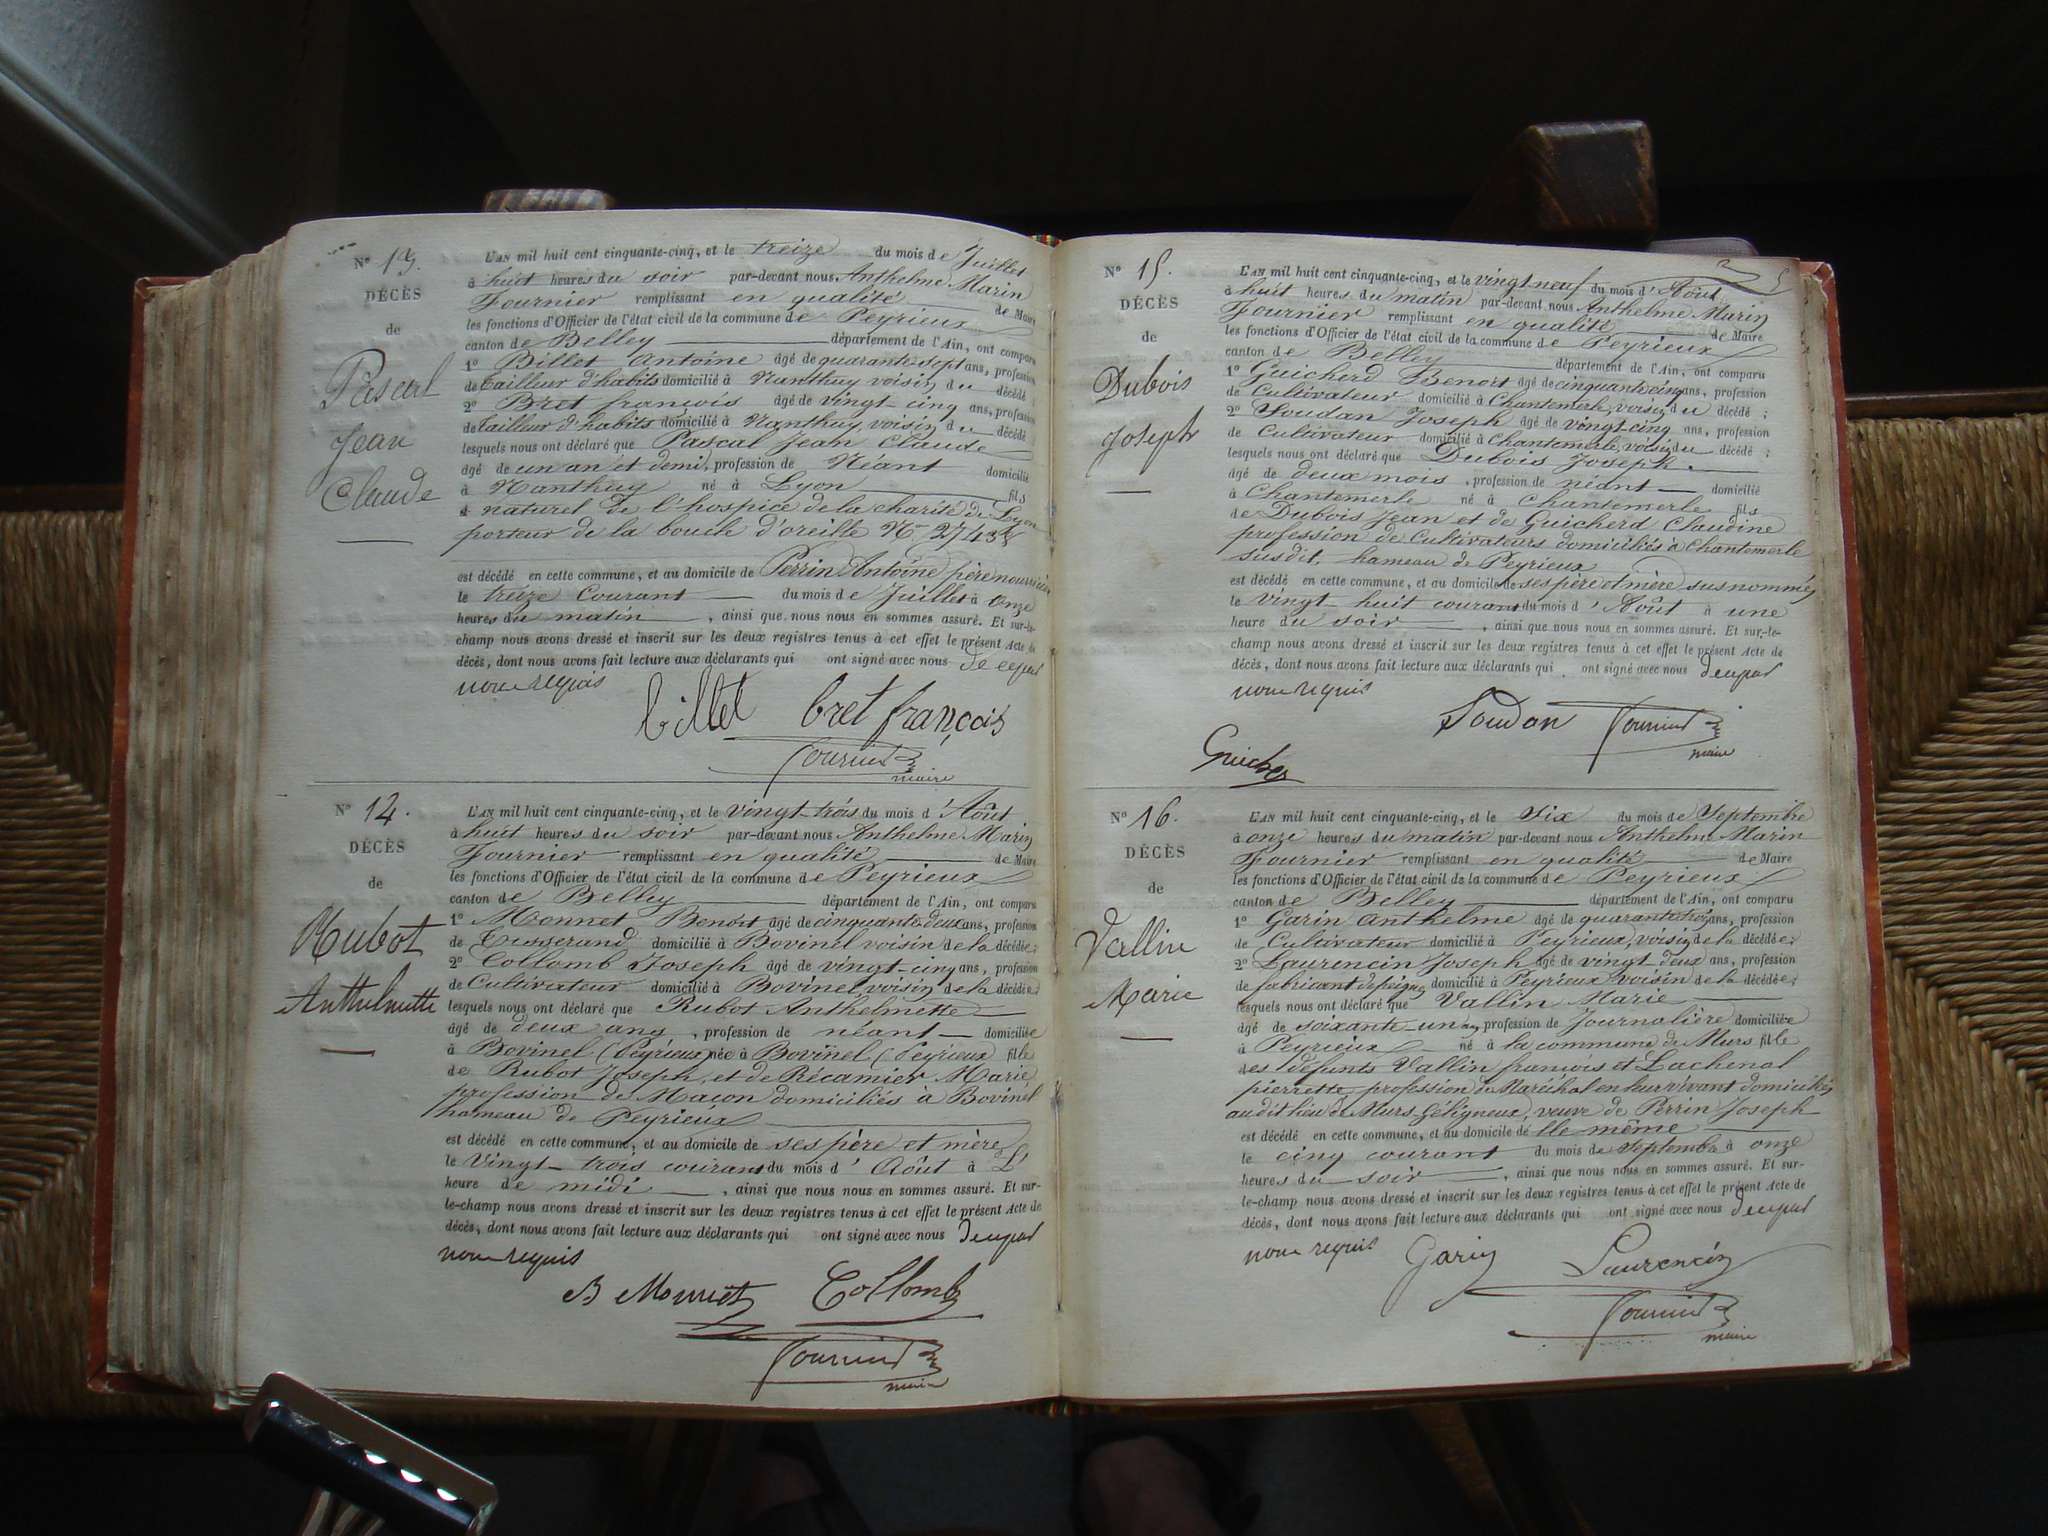 N° 13.
DÉCÈS
de
Pascal
Jean
Claude
L'AN mil huit cent cinquante-cinq, et le treize du mois de Juillet
à huit heures du soir par-devant nous Anthelme Marin
Fournier remplissant en qualité de Maire
les fonctions d'Officier de l'état civil de la commune de Peyrieux
canton de Belley département de l'Ain, ont comparu
1° Billet Antoine âgé de quarante sept ans, profession
de tailleur d'habits domicilié à Nanthuy voisin du décédé;
2° Bret françois âgé de vingt-cinq ans, profession
de tailleur d'habits domicilié à Nanthuy voisin du décédé
lesquels nous ont déclaré que Pascal Jean Claude
âgé de un an et demi, profession de Néant domicilié
à Nanthuy né à Lyon fils
naturel de l'hospice de la charité de Lyon
porteur de la boucle d'oreille N°
est décédé en cette commune, et au domicile de Perrin Antoine père nourricier
le treize Courant du mois de Juillet à onze
heures du matin, ainsi que nous nous en sommes assuré. Et sur-le-
champ nous avons dressé et inscrit sur les deux registres tenus à cet effet le présent Acte de
décès, dont nous avons fait lecture aux déclarants qui ont signé avec nous de ce par
nous requis
billet bret françois
Fournier
maire
N° 14.
DÉCÈS
de
Rubot
Anthelmette
L'AN mil huit cent cinquante-cinq, et le vingt-trois du mois d'Août
à huit heures du soir par-devant nous Anthelme Marin
Fournier remplissant en qualité de Maire
les fonctions d'Officier de l'état civil de la commune de Peyrieux
canton de Belley département de l'Ain, ont comparu
1° Monnet Benoît âgé de cinquante deux ans, profession
de Tisserand domicilié à Bovinel voisin de la décédée;
2° Collomb Joseph âgé de vingt-cinq ans, profession
de Cultivateur domicilié à Bovinel, voisin de la décédée;
lesquels nous ont déclaré que Rubot Anthelmette
âgé de deux ans, profession de néant domiciliée
à Bovinel (Peyrieux) née à Bovinel (Peyrieux fille
de Rubot Joseph, et de Récamier Marie,
profession de Macon domiciliés à Bovinel
hameau de Peyrieux
est décédé en cette commune, et au domicile de ses père et mère
le Vingt-trois courant du mois d'Août à L'
heure de midi, ainsi que nous nous en sommes assuré. Et sur-
le-champ nous avons dressé et inscrit sur les deux registres tenus à cet effet le présent Acte de
décès, dont nous avons fait lecture aux déclarants qui ont signé avec nous de ce par
nous requis
B Monnet Collomb
Fournier
maire
N° 15.
DÉCÈS
de
Dubois
Joseph
L'AN mil huit cent cinquante-cinq, et le vingt neuf du mois d'Août
à huit heures du matin par-devant nous Anthelme Marin
Fournier remplissant en qualité de Maire
les fonctions d'Officier de l'état civil de la commune de Peyrieux
canton de Belley département de l'Ain, ont comparu
1° Guicherd Benoît âgé de cinquante cinq ans, profession
de Cultivateur domicilié à Chantemerle, voisin du décédé;
2° Soudan Joseph âgé de vingt cinq ans, profession
de Cultivateur domicilié à Chantemerle, voisin du décédé;
lesquels nous ont déclaré que Dubois Joseph.
âgé de deux mois, profession de néant domicilié
à Chantemerle né à Chantemerle fils
de Dubois Jean et de Guicherd Claudine
profession de Cultivateurs domiciliés à Chantemerle
susdit, hameau de Peyrieux
est décédé en cette commune, et au domicile de ses père et mère susnommés
le vingt-huit courant du mois d'Août à une
heure du soir, ainsi que nous nous en sommes assuré. Et sur-le-
champ nous avons dressé et inscrit sur les deux registres tenus à cet effet le présent Acte de
décès, dont nous avons fait lecture aux déclarants qui ont signé avec nous de ce par
nous requis
Soudan Fournier
maire
N° 16.
DÉCÈS
de
Vallin
Marie
L'AN mil huit cent cinquante-cinq, et le Six du mois de Septembre
à onze heures du matin par-devant nous Anthelme Marin
Fournier remplissant en qualité de Maire
les fonctions d'Officier de l'état civil de la commune de Peyrieux
canton de Belley département de l'Ain, ont comparu
1° Garin Anthelme âgé de quarante trois ans, profession
de Cultivateur domicilié à Peyrieux, voisin de la décédée;
2° Laurencin Joseph âgé de vingt-deux ans, profession
de fabricant de peignes domicilié à Peyrieux voisin de la décédée;
lesquels nous ont déclaré que Vallin Marie
âgé de soixante-un ans, profession de Journalière domiciliée
à Peyrieux né à la commune de Murs fille
des défunts Vallin françois et Lachenal
pierrette, profession de Maréchal en leur vivant domiciliés
au dit lieu de Murs Géligneux, veuve de Perrin Joseph
est décédé en cette commune, et au domicile d'elle même
le cinq courant du mois de Septembre à onze
heures du soir, ainsi que nous nous en sommes assuré. Et sur-
le-champ nous avons dressé et inscrit sur les deux registres tenus à cet effet le présent Acte de
décès, dont nous avons fait lecture aux déclarants qui ont signé avec nous de ce par
nous requis Garin Laurencin
Fournier
maire